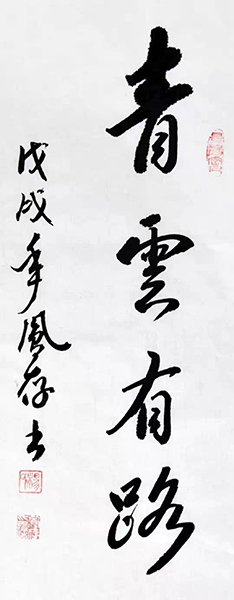 青雲有路
戊戌年鳳存书